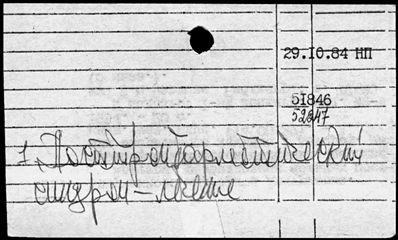 29.10.84 НП
51846
52247
1. Посттромбофлебитический
синдром – лечение